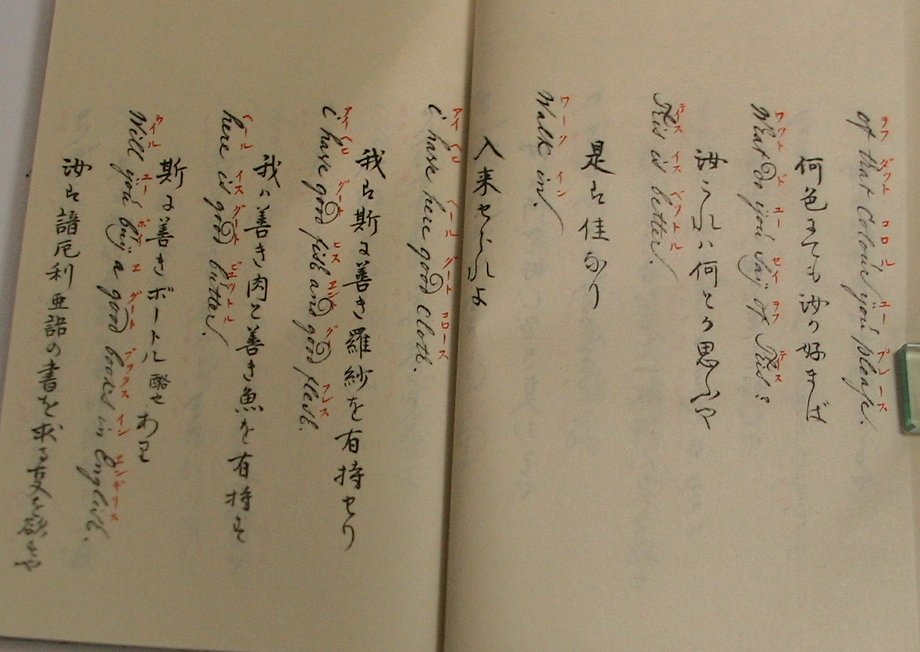 ヲフ ダット コロル ユー プレース
of that Colour you please.
何色にても汝の好まば
ワット ド ユー セイ ヲフ デス
What do you Say of This?
汝ハ是に何とか思ふや
デス イス ベットル
This is better.
是は佳なり
ワーク イン
Walk in.
入来せられよ
アイ ヘブ ヘール グート コロース
i have here good Cloth.
我は斯に善き羅紗を有持せり
アイ ヘブ グート ヒス エンド グート フレス
i have good fish and good flesh.
我ハ善き肉と善き魚を有持す
ヘール イス グート ビュットル
here is good butter.
斯に善きボートル 酪也 あり
ウイル ユー ボイ エ グート ブックス イン エンゲリス
Will you buy a good books in English.
汝は諳厄利亜語の書を求る事を欲すや